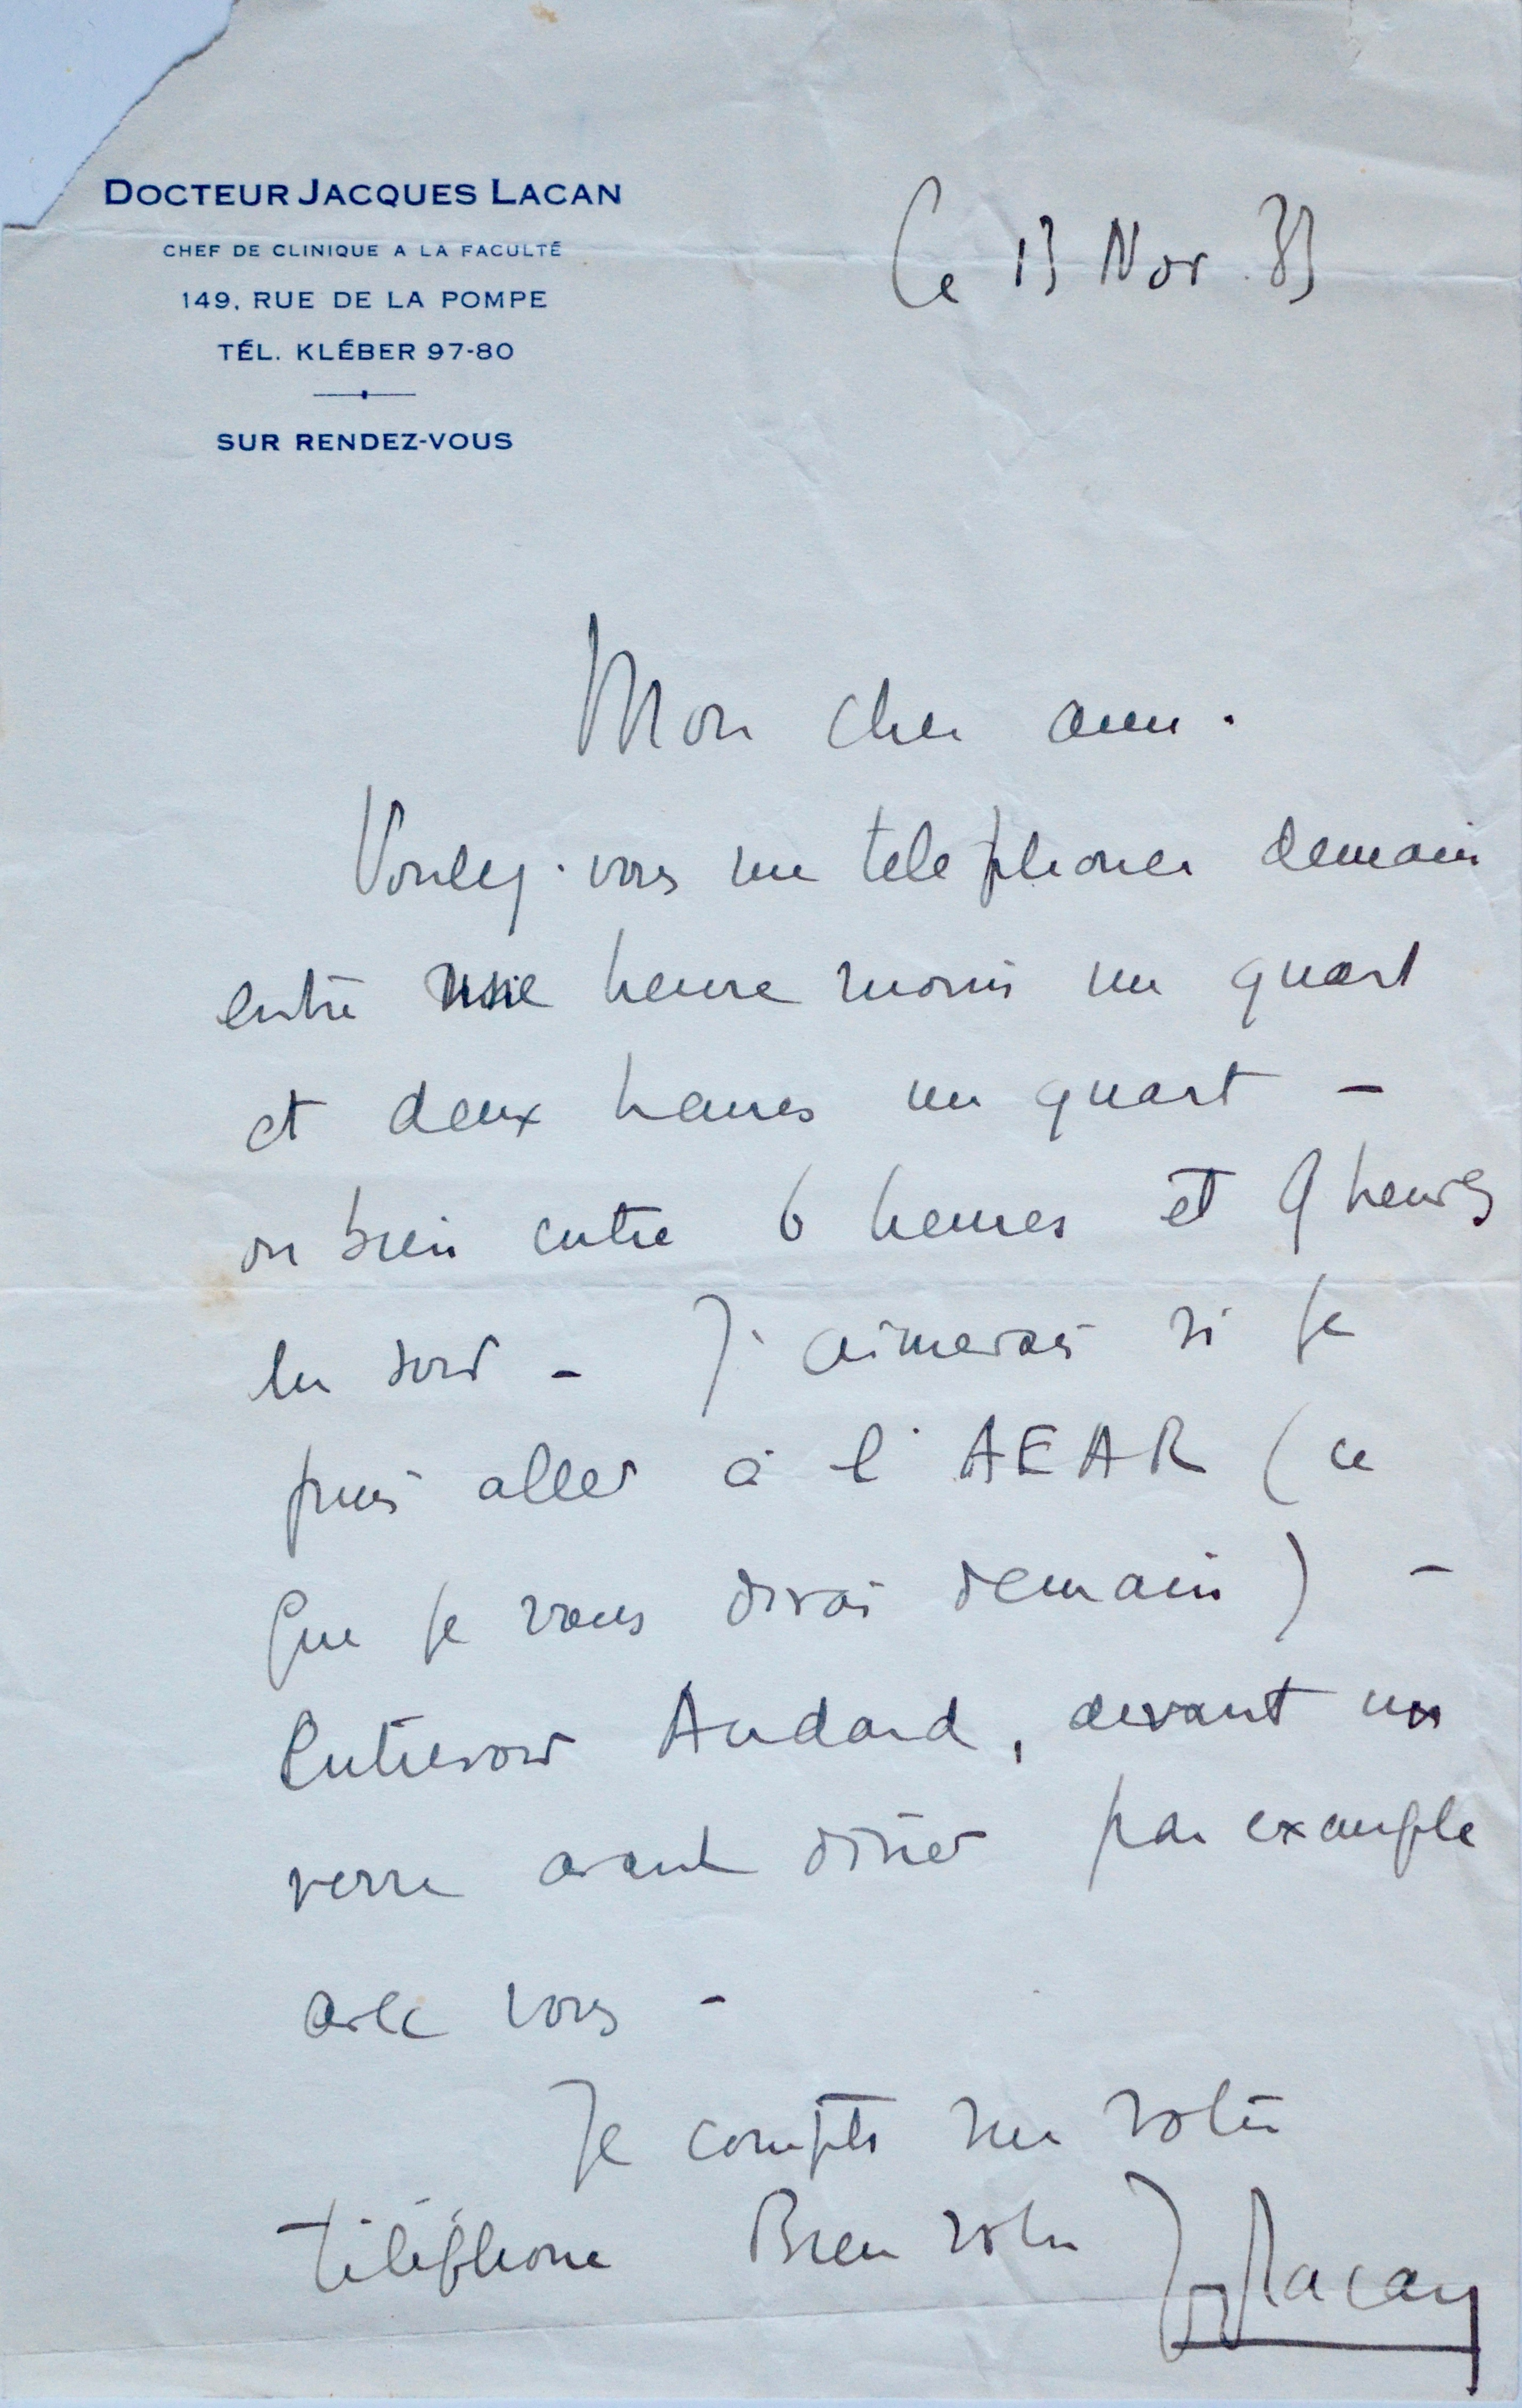 DOCTEUR JACQUES LACAN
CHEF DE CLINIQUE A LA FACULTÉ
149, RUE DE LA POMPE
TÉL. KLÉBER 97-80
SUR RENDEZ-VOUS
Ce 13 Nov. 33
Mon cher ami.
Voulez-vous me telephoner demain
entre une heure moins un quart
et deux heures un quart –
ou bien entre 6 heures et 9 heures
du soir – J'aimerais si je
puis aller à l'AEAR (ce
que je vous dirai demain) –
entrevoir Audard, devant un
verre avant dîner par exemple
avec vous –
Je compte sur votre
téléphone Bien votre J Lacan